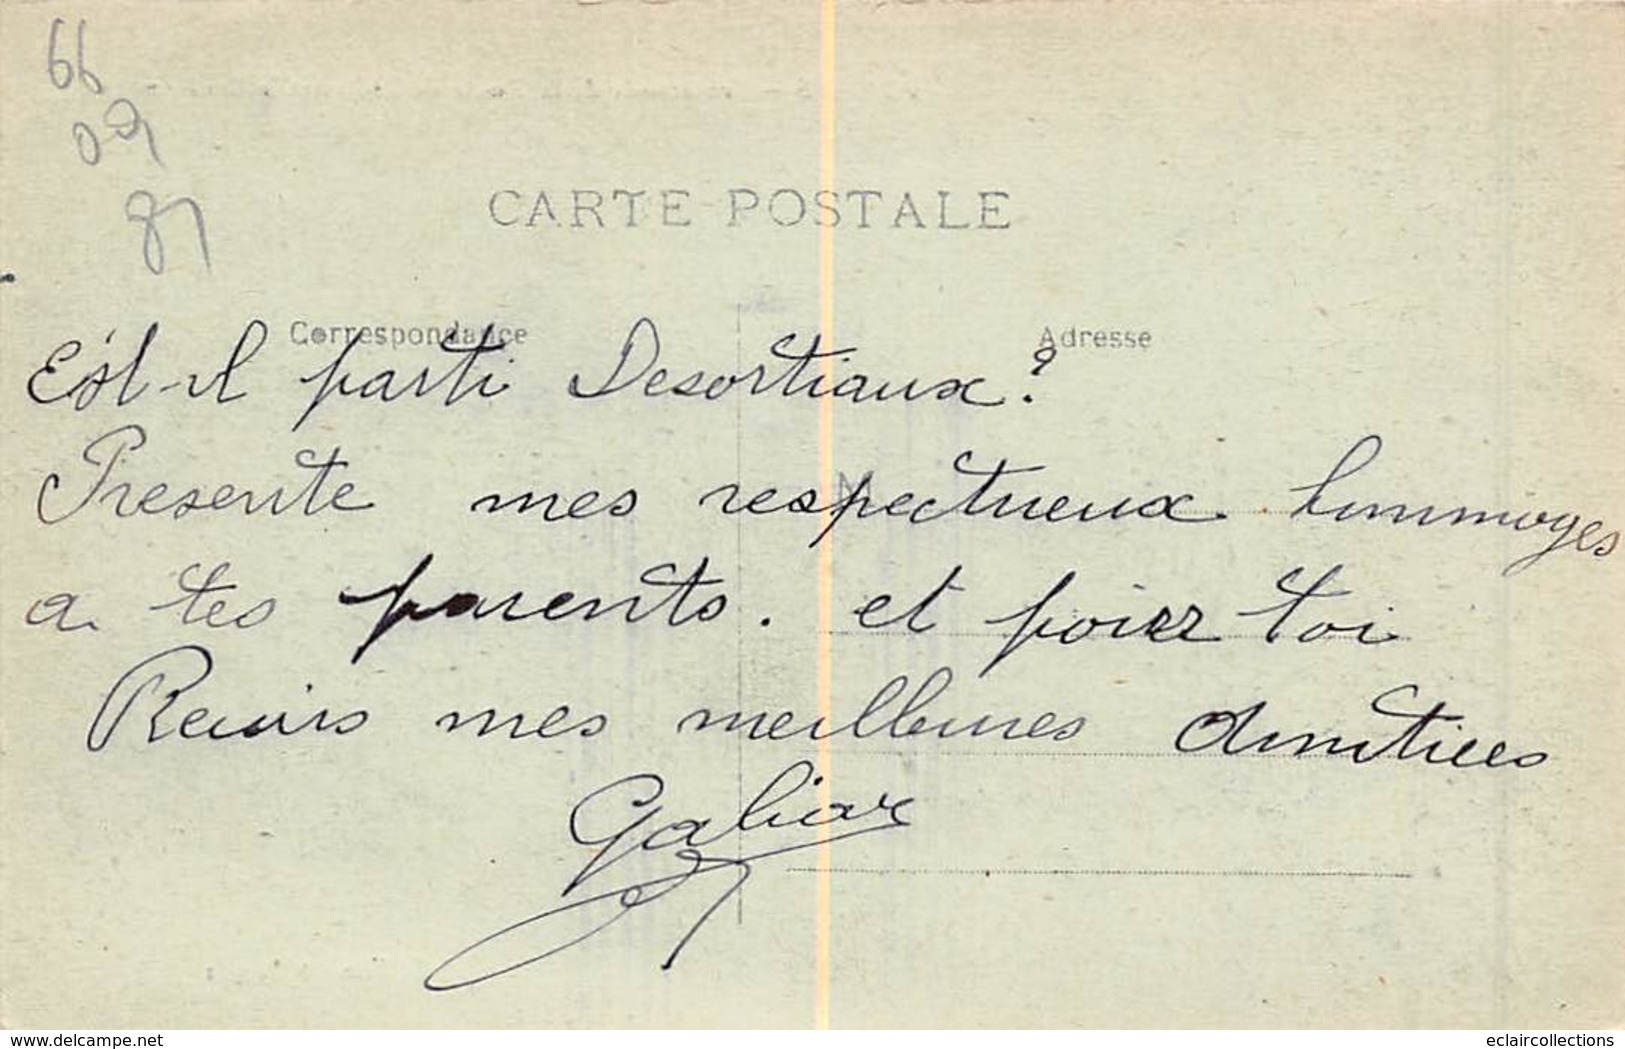 66
09
87
CARTE POSTALE
Correspondance
Adresse
Est-il parti Desortiaux?
Presente mes respectueux hommages
M
a tes parents. et pour toi
Recois mes meilleures amitiees
Galiar
www.delcampe.net
eclaircollections